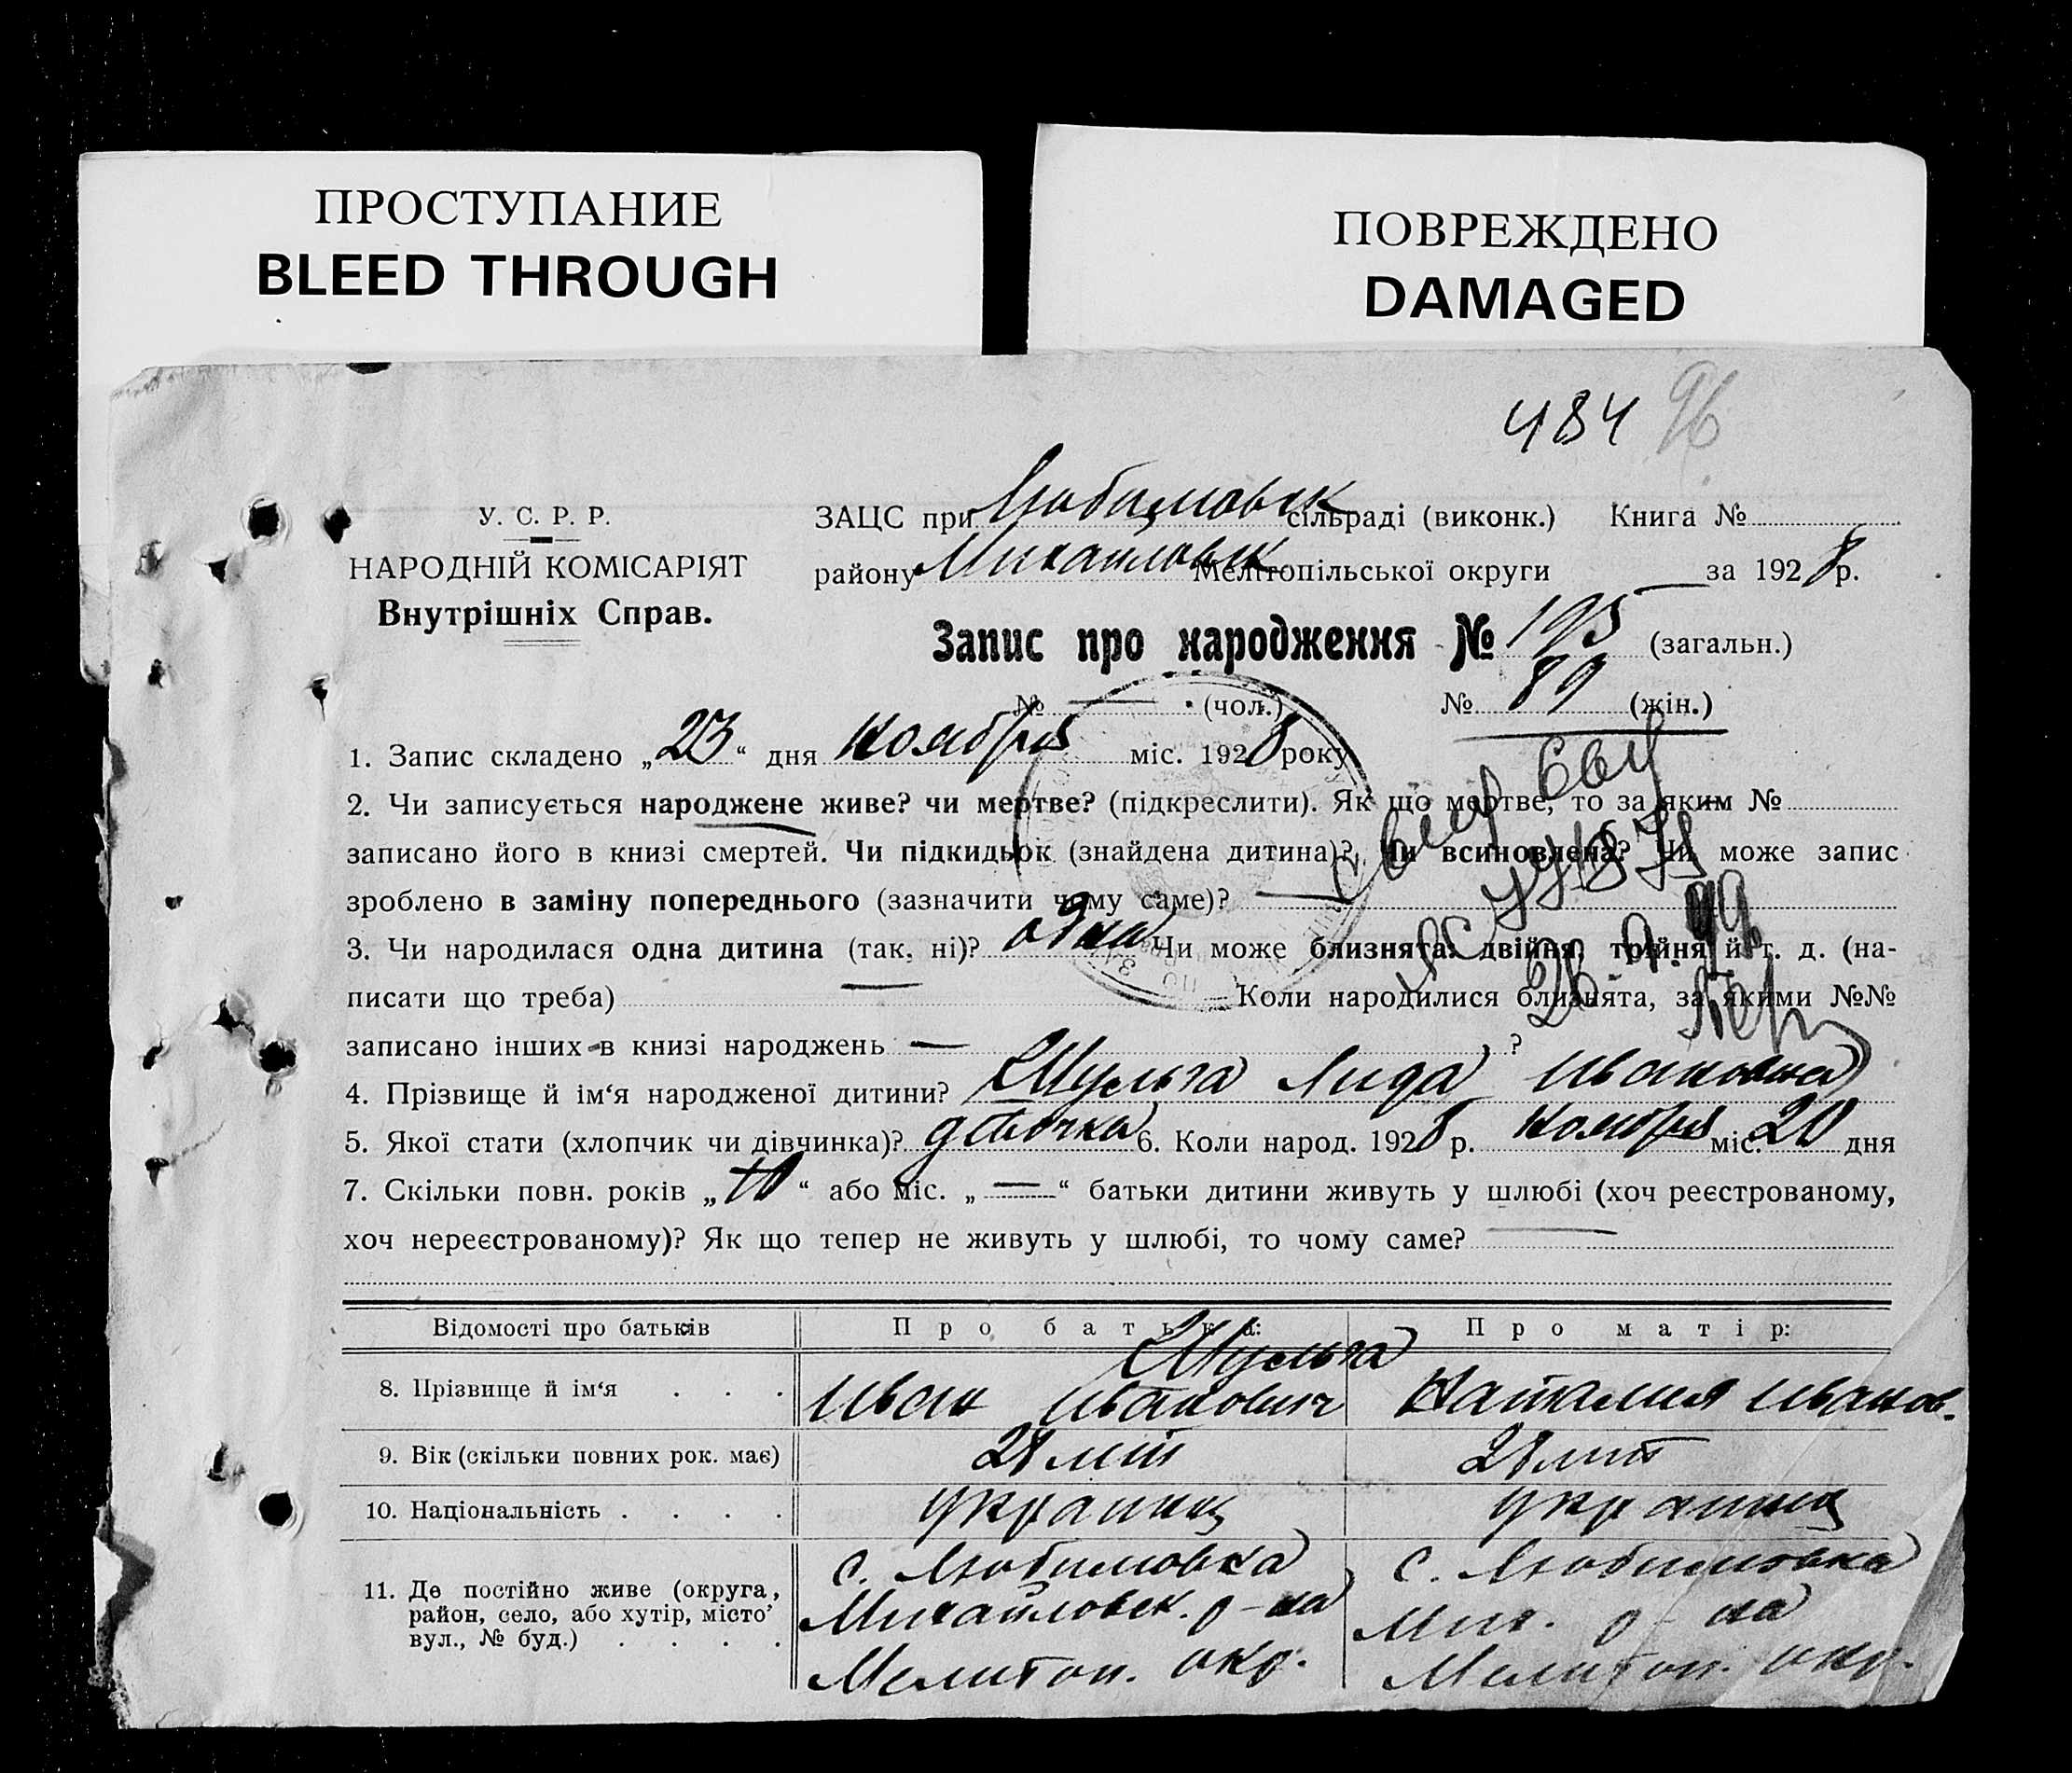 ПРОСТУПАНИЕ
BLEED THROUGH
ПОВРЕЖДЕНО
DAMAGED
484 96
У. С. Р. Р.
НАРОДНІЙ КОМІСАРІЯТ
Внутрішніх Справ.
ЗАЦС при Любимовск сільраді (виконк.) Книга №
району Михайловск Мелітопільської округи за 1928 р.
Запис про народження № 195 (загальн.)
№ — (чол.) № 89 (жін.)
1. Запис складено „23“ дня ноября міс. 1928 року
2. Чи записується народжене живе? чи мертве? (підкреслити). Як що мертве, то за яким №
записано його в книзі смертей. Чи підкидьок (знайдена дитина)? Чи всиновлена? Чи може запис
зроблено в заміну попереднього (зазначити чому саме)? —
3. Чи народилася одна дитина (так, ні)? одна Чи може близнята: двійня, трійня й т. д. (на-
писати що треба) Коли народилися близнята, за якими №№
записано інших в книзі народжень — ?
4. Прізвище й ім‘я народженої дитини? Шульга Лида Ивановна
5. Якої стати (хлопчик чи дівчинка)? девочка 6. Коли народ. 1928 р. ноября міс. 20 дня
7. Скільки повн. років „10“ або міс. „—“ батьки дитини живуть у шлюбі (хоч реєстрованому,
хоч нереєстрованому)? Як що тепер не живуть у шлюбі, то чому саме? —
Відомості про батьків Про батька: Про матір:
Шульга
8. Прізвище й ім‘я . . . Иван Иванович Наталия Иванов.
9. Вік (скільки повних рок. має) 28 лет 28 лет
10. Національність . . . . украинц украинц
11. Де постійно живе (округа, район, село, або хутір, місто, вул., № буд.) . . . .
с. Любимовка
Михайловск. р-на
Мелитоп. окр.
с. Любимовка
Мих. р-на
Мелитоп. окр.